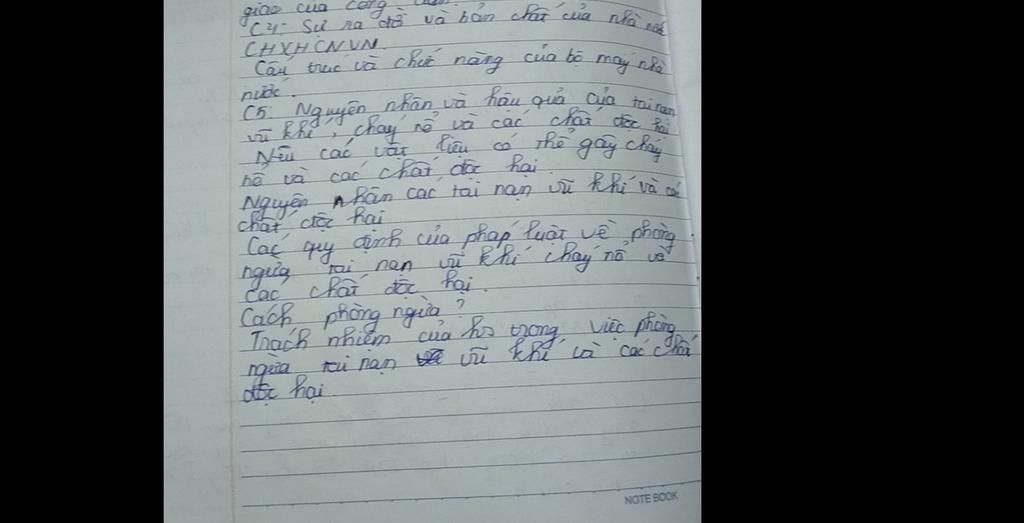 giao của công
C4: Sự ra đời và bản chất của nhà nước
CHXHCNVN.
Cấu trúc và chức năng của bộ máy nhà
nước.
C5: Nguyên nhân và hậu quả của tai nạn
vũ khí, cháy nổ và các chất độc hại
Nêu các vật liệu có thể gây cháy
nổ và các chất độc hại.
Nguyên nhân các tai nạn vũ khí và các
chất độc hại
Các quy định của pháp luật về phòng
ngừa tai nạn vũ khí cháy nổ và
các chất độc hại.
Cách phòng ngừa?
Trách nhiệm của hs trong việc phòng
ngừa tai nạn vũ khí và các chất
độc hại
NOTE BOOK